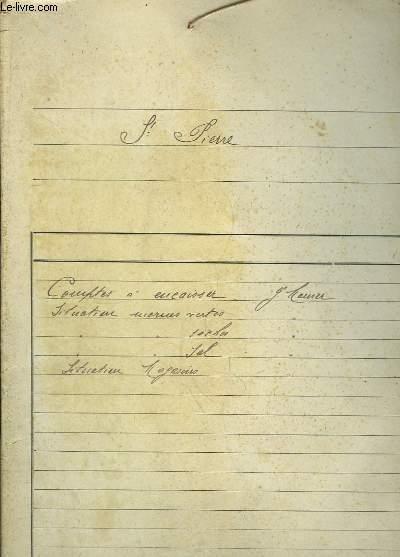 Le-livre.com
St Pierre
Comptes à encaisser
Situation morues vertes
" " sèches
" " Sel
Situation Magasins